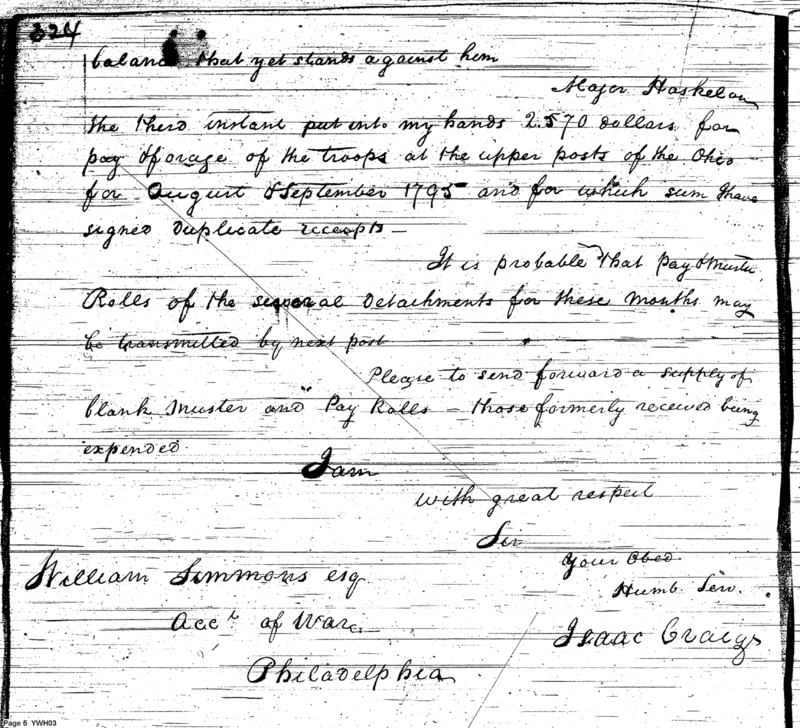 324
balance that yet stands against him
Major Haskel on
the third instant put into my hands 2.570 dollars for
pay & forage of the troops at the upper posts of the Ohio
for August & September 1795 and for which sum I have
signed duplicate receipts —
It is probable that Pay & Muster
Rolls of the several Detachments for these months may
be transmitted by next post
Please to send forward a supply of
blank Muster and Pay Rolls – those formerly received being
expended.
I am
with great respect
Sir
Your Obed.
Humb. Serv.
William Simmons esq
Acct. of War.
Isaac Craig
Philadelphia
Page 5 YWH03